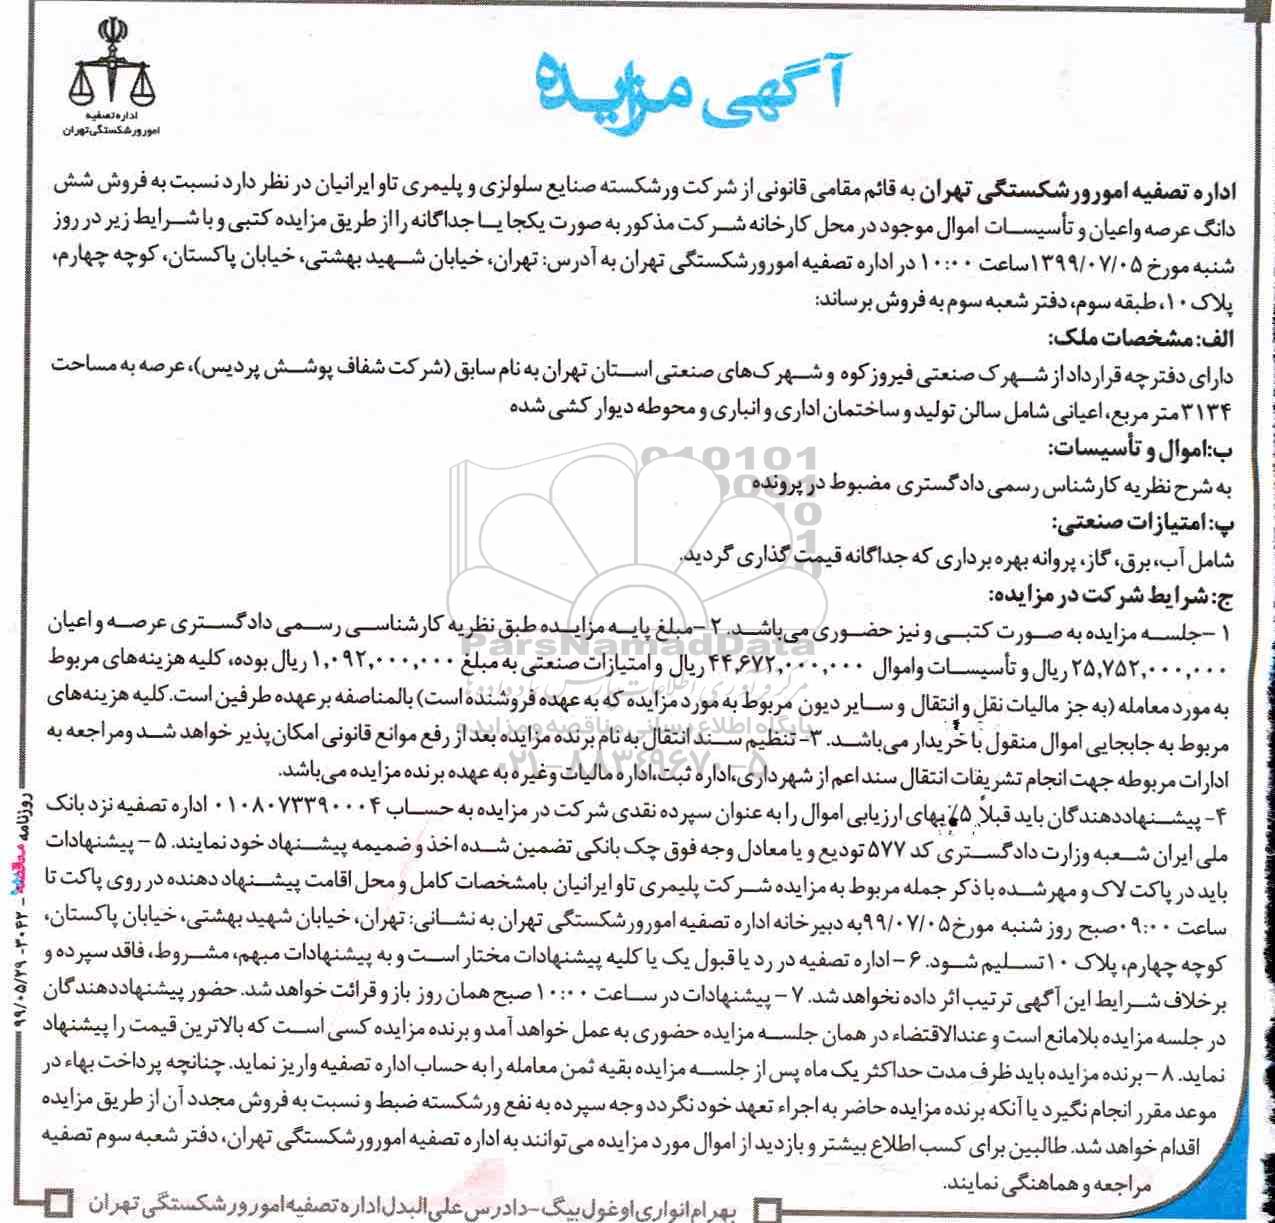 اداره تصفیه
امور ورشکستگی تهران
آگهی مزایده
اداره تصفیه امور ورشکستگی تهران به قائم مقامی قانونی از شرکت ورشکسته صنایع سلولزی و پلیمری تاو ایرانیان در نظر دارد نسبت به فروش شش
دانگ عرصه واعیان و تأسیسات اموال موجود در محل کارخانه شرکت مذکور به صورت یکجا یا جداگانه را از طریق مزایده کتبی و با شرایط زیر در روز
شنبه مورخ ۱۳۹۹/۰۷/۰۵ ساعت ۱۰:۰۰ در اداره تصفیه امور ورشکستگی تهران به آدرس: تهران، خیابان شهید بهشتی، خیابان پاکستان، کوچه چهارم،
پلاک ۱۰، طبقه سوم، دفتر شعبه سوم به فروش برساند:
الف: مشخصات ملک:
دارای دفترچه قرارداد از شهرک صنعتی فیروزکوه و شهرک‌های صنعتی استان تهران به نام سابق (شرکت شفاف پوشش پردیس)، عرصه به مساحت
۳۱۳۴ متر مربع، اعیانی شامل سالن تولید و ساختمان اداری و انباری و محوطه دیوار کشی شده
ب: اموال و تأسیسات:
به شرح نظریه کارشناس رسمی دادگستری مضبوط در پرونده
پ: امتیازات صنعتی:
شامل آب، برق، گاز، پروانه بهره برداری که جداگانه قیمت گذاری گردید.
ج: شرایط شرکت در مزایده:
۱- جلسه مزایده به صورت کتبی و نیز حضوری می‌باشد. ۲- مبلغ پایه مزایده طبق نظریه کارشناسی رسمی دادگستری عرصه و اعیان
۲۵,۷۵۲,۰۰۰,۰۰۰ ریال و تأسیسات واموال ۴۴,۶۷۲,۰۰۰,۰۰۰ ریال و امتیازات صنعتی به مبلغ ۱,۰۹۲,۰۰۰,۰۰۰ ریال بوده، کلیه هزینه‌های مربوط
به مورد معامله (به جز مالیات نقل و انتقال و سایر دیون مربوط به مورد مزایده که به عهده فروشنده است) بالمناصفه بر عهده طرفین است. کلیه هزینه‌های
مربوط به جابجایی اموال منقول با خریدار می‌باشد. ۳- تنظیم سند انتقال به نام برنده مزایده بعد از رفع موانع قانونی امکان‌پذیر خواهد شد ومراجعه به
ادارات مربوطه جهت انجام تشریفات انتقال سند اعم از شهرداری، اداره ثبت، اداره مالیات وغیره به عهده برنده مزایده می‌باشد.
۴- پیشنهاد دهندگان باید قبلاً ۵٪ بهای ارزیابی اموال را به عنوان سپرده نقدی شرکت در مزایده به حساب ۰۱۰۸۰۷۳۳۹۰۰۰۴ اداره تصفیه نزد بانک
ملی ایران شعبه وزارت دادگستری کد ۵۷۷ تودیع و یا معادل وجه فوق چک بانکی تضمین شده اخذ و ضمیمه پیشنهاد خود نمایند. ۵- پیشنهادات
باید در پاکت لاک و مهر شده با ذکر جمله مربوط به مزایده شرکت پلیمری تاو ایرانیان بامشخصات کامل و محل اقامت پیشنهاد دهنده در روی پاکت تا
ساعت ۰۹:۰۰ صبح روز شنبه مورخ ۹۹/۰۷/۰۵ به دبیرخانه اداره تصفیه امور ورشکستگی تهران به نشانی: تهران، خیابان شهید بهشتی، خیابان پاکستان،
کوچه چهارم، پلاک ۱۰ تسلیم شود. ۶- اداره تصفیه در رد یا قبول یک یا کلیه پیشنهادات مختار است و به پیشنهادات مبهم، مشروط، فاقد سپرده و
برخلاف شرایط این آگهی ترتیب اثر داده نخواهد شد. ۷- پیشنهادات در ساعت ۱۰:۰۰ صبح همان روز باز و قرائت خواهد شد. حضور پیشنهاددهندگان
در جلسه مزایده بلامانع است و عندالاقتضاء در همان جلسه مزایده حضوری به عمل خواهد آمد و برنده مزایده کسی است که بالاترین قیمت را پیشنهاد
نماید. ۸- برنده مزایده باید ظرف مدت حداکثر یک ماه پس از جلسه مزایده بقیه ثمن معامله را به حساب اداره تصفیه واریز نماید. چنانچه پرداخت بهاء در
موعد مقرر انجام نگیرد یا آنکه برنده مزایده حاضر به اجراء تعهد خود نگردد وجه سپرده به نفع ورشکسته ضبط و نسبت به فروش مجدد آن از طریق مزایده
اقدام خواهد شد. طالبین برای کسب اطلاع بیشتر و بازدید از اموال مورد مزایده می‌توانند به اداره تصفیه امور ورشکستگی تهران، دفتر شعبه سوم تصفیه
مراجعه و هماهنگی نمایند.
بهرام انواری اوغول بیگ - دادرس علی البدل اداره تصفیه امور ورشکستگی تهران
روزنامه مناقصه - ۳۰۴۲ - ۹۹/۰۵/۲۹
ParsNamadData
پایگاه اطلاع رسانی مناقصه و مزایده
۰۲۱-۸۸۳۴۹۶۷۰-۵